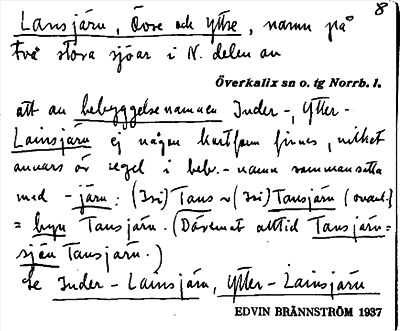 8
Lansjärn, Övre och Yttre, namn på
två stora sjöar i N. delen av
Överkalix sn o. tg Norrb. l.
att av bebyggelsenamnen Inder-, Ytter-
Lainsjärn ej någon kortform finnes, vilket
annars är regel i beb.-namn sammansatta
med -järn: (Isi) Tans ~ (Isi) Tansjärn (ovanl.)
= byn Tansjärn. (Däremot alltid Tansjärn-
sjön Tansjärn.)
Se Inder-Lainsjärn, Ytter-Lainsjärn
EDVIN BRÄNNSTRÖM 1937